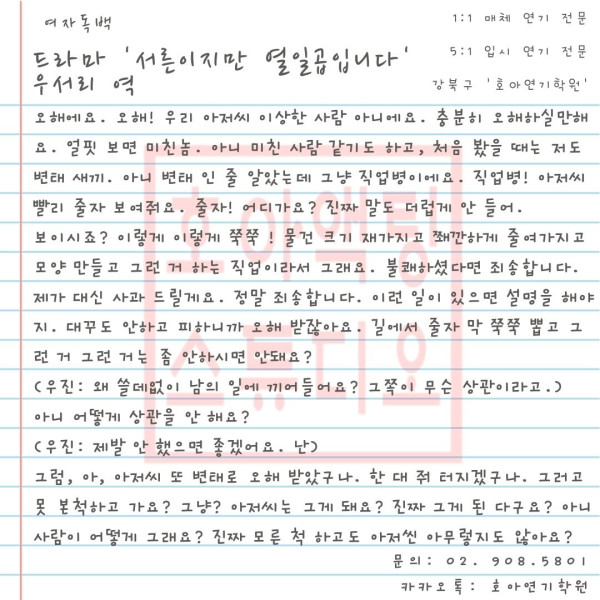 여자독백
1:1 매체 연기 전문
드라마 '서른이지만 열일곱입니다'
5:1 입시 연기 전문
우서리 역
강북구 '호아연기학원'
오해에요. 오해! 우리 아저씨 이상한 사람 아니에요. 충분히 오해하실만해
요. 얼핏 보면 미친놈. 아니 미친 사람 같기도 하고, 처음 봤을 때는 저도
변태 새끼. 아니 변태 인 줄 알았는데 그냥 직업병이에요. 직업병! 아저씨
빨리 줄자 보여줘요. 줄자! 어디가요? 진짜 말도 더럽게 안 들어.
보이시죠? 이렇게 이렇게 쭉쭉 ! 물건 크기 재가지고 쬐깐하게 줄여가지고
모양 만들고 그런 거 하는 직업이라서 그래요. 불쾌하셨다면 죄송합니다.
제가 대신 사과 드릴게요. 정말 죄송합니다. 이런 일이 있으면 설명을 해야
지. 대꾸도 안하고 피하니까 오해 받잖아요. 길에서 줄자 막 쭉쭉 뽑고 그
런 거 그런 거는 좀 안하시면 안돼요?
(우진: 왜 쓸데없이 남의 일에 끼어들어요? 그쪽이 무슨 상관이라고.)
아니 어떻게 상관을 안 해요?
(우진: 제발 안 했으면 좋겠어요. 난)
그럼, 아, 아저씨 또 변태로 오해 받았구나. 한 대 줘 터지겠구나. 그러고
못 본척하고 가요? 그냥? 아저씨는 그게 돼요? 진짜 그게 된 다구요? 아니
사람이 어떻게 그래요? 진짜 모른 척 하고도 아저씬 아무렇지도 않아요?
문의: 02. 908.5801
카카오톡: 호아연기학원
호아액팅
스튜디오